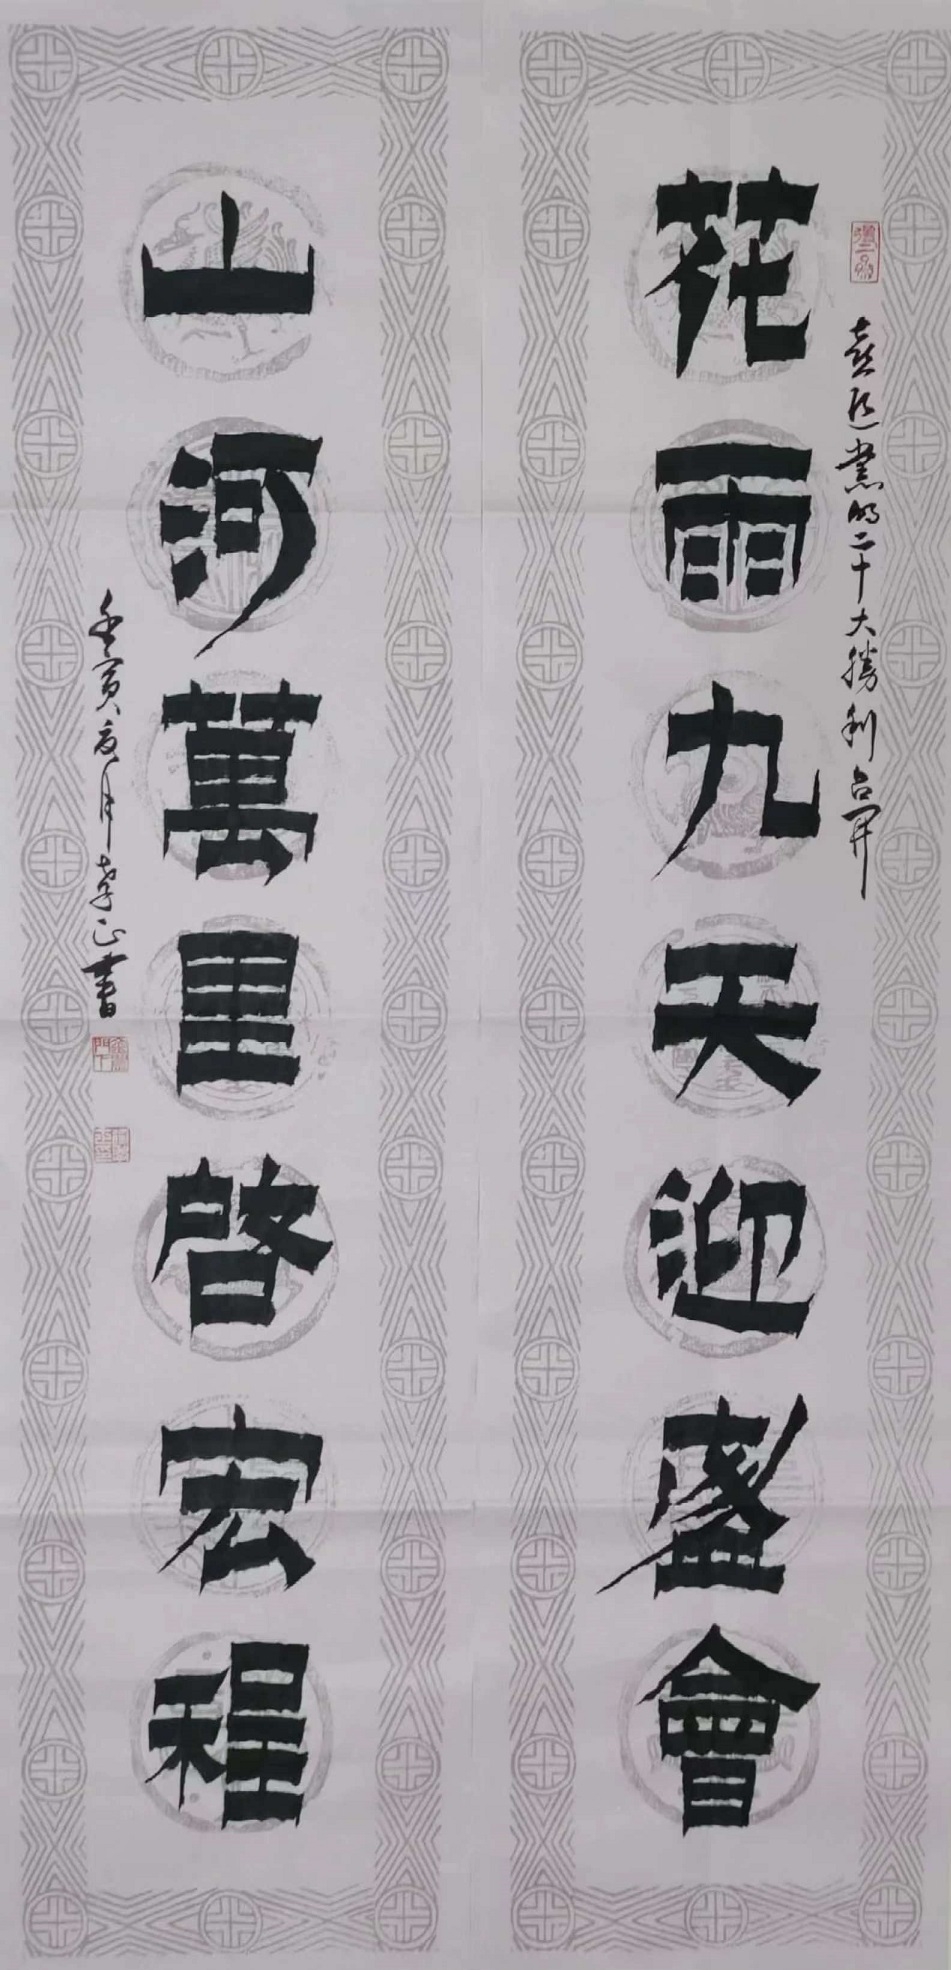 喜迎黨的二十大勝利召開
花雨九天迎盛會
山河萬里啓宏程
壬寅夏月孝正書